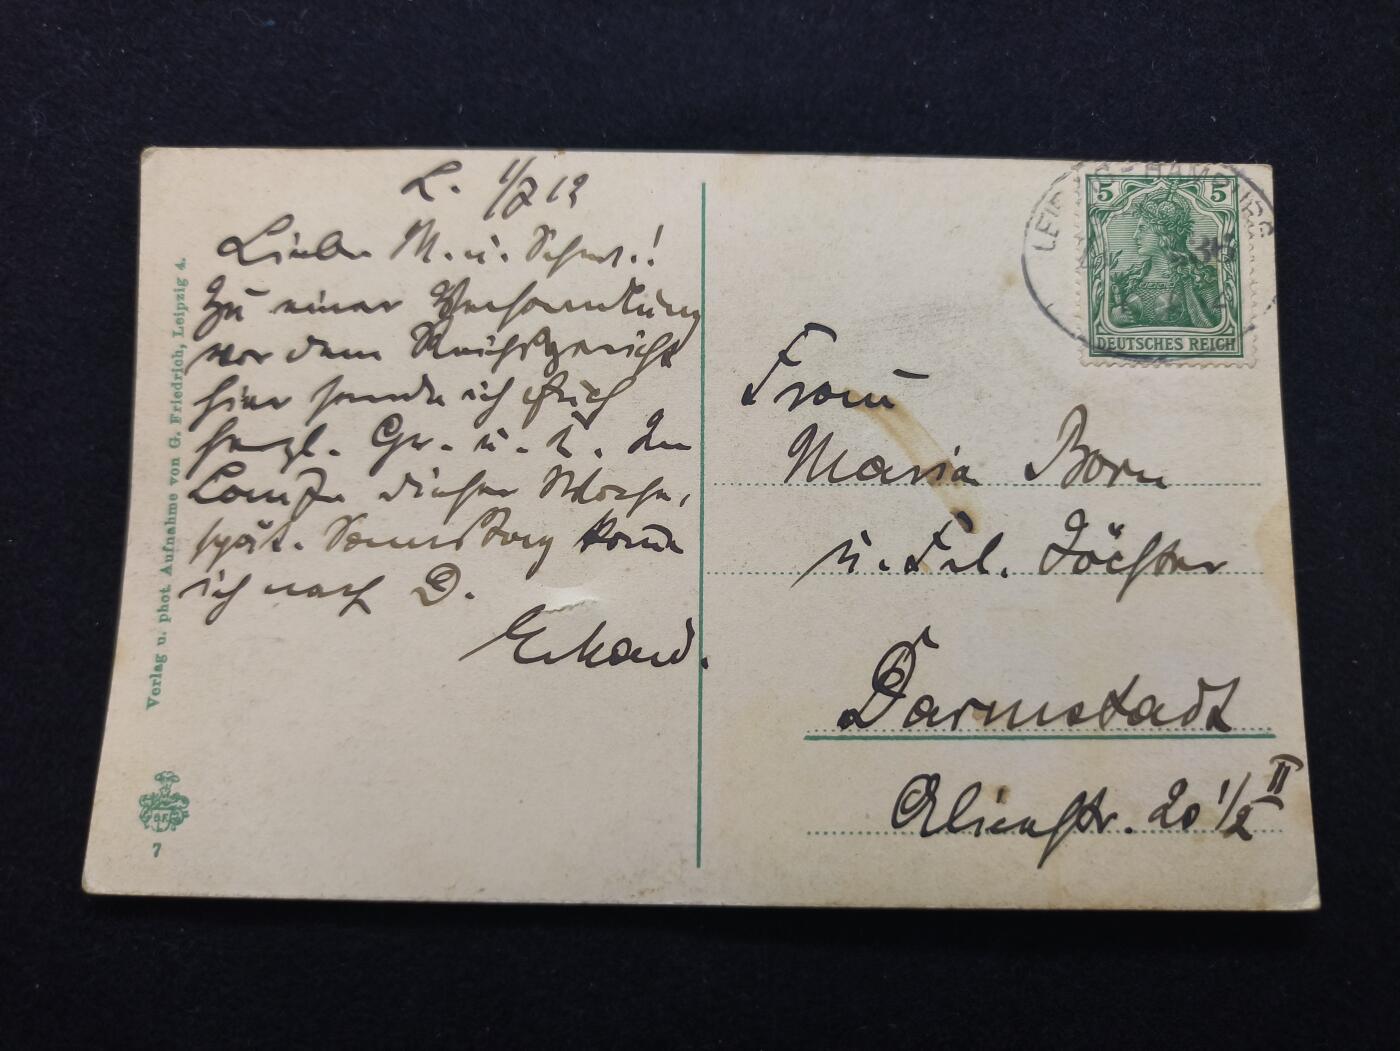 L. 1/7 12
Liebe M. u. Schw.!
Zu einer Verhandlung
vor dem Reichsgericht
hier sende ich Euch
herzl. Gr. u. K. Im
Laufe dieser Woche,
spät. Sonnstag komme
ich nach D.
Erhard.
Verlag u. phot. Aufnahme von G. Friedrich, Leipzig 4.
7
5 5
DEUTSCHES REICH
Frau
Maria Born
u. Frl. Töchter
Darmstadt
Alicenstr. 20 1/2 II